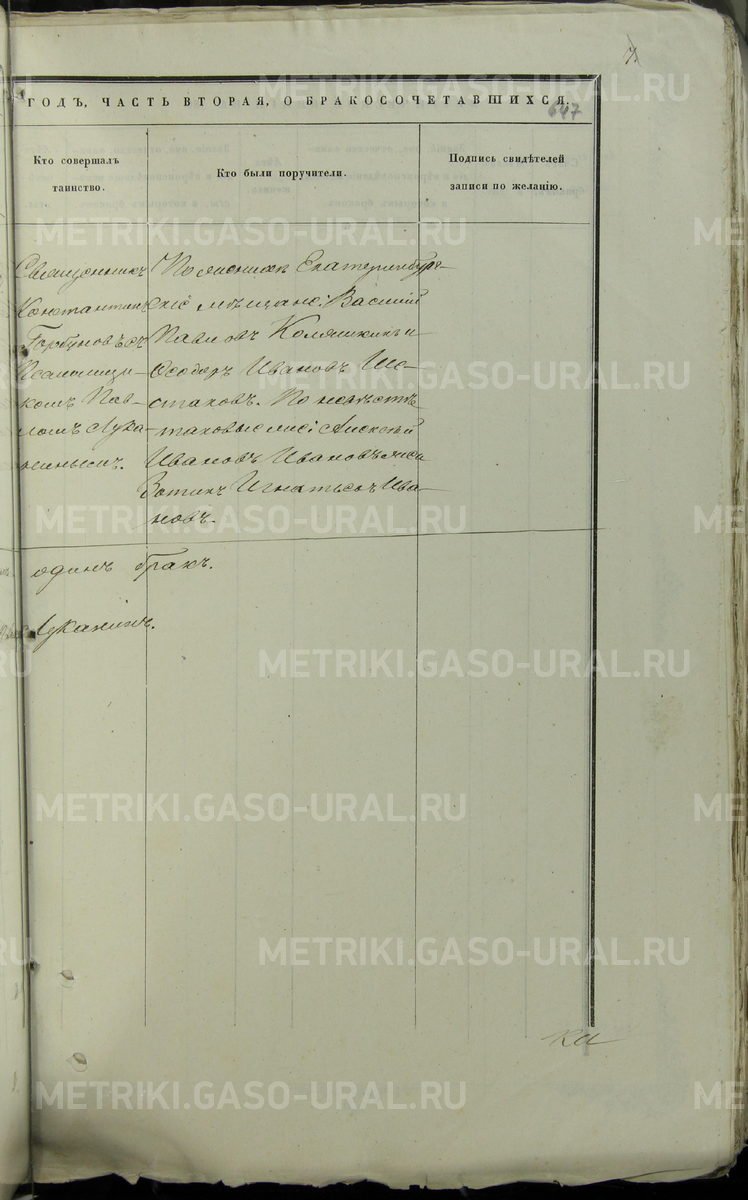 7.
ГОДЪ, ЧАСТЬ ВТОРАЯ, О БРАКОСОЧЕТАВШИХСЯ.
647
Кто совершалъ
таинство.
Кто были поручители.
Подпись свидѣтелей
записи по желанію.
Священникъ
Константинъ
Горбуновъ съ
Псаломщи-
комъ Пав-
ломъ Лука-
нинымъ.
По женихѣ Екатеринбург-
скіе мѣщане: Василій
Павловъ Коляшкинъ и
Ѳеодоръ Ивановъ Ше-
стаковъ. По невѣстѣ
таковые же: Алексѣй
Ивановъ Ивановъ же и
Зотикъ Игнатьевъ Ива-
новъ.
одинъ бракъ.
Луканинъ.
METRIKI.GASO-URAL.RU